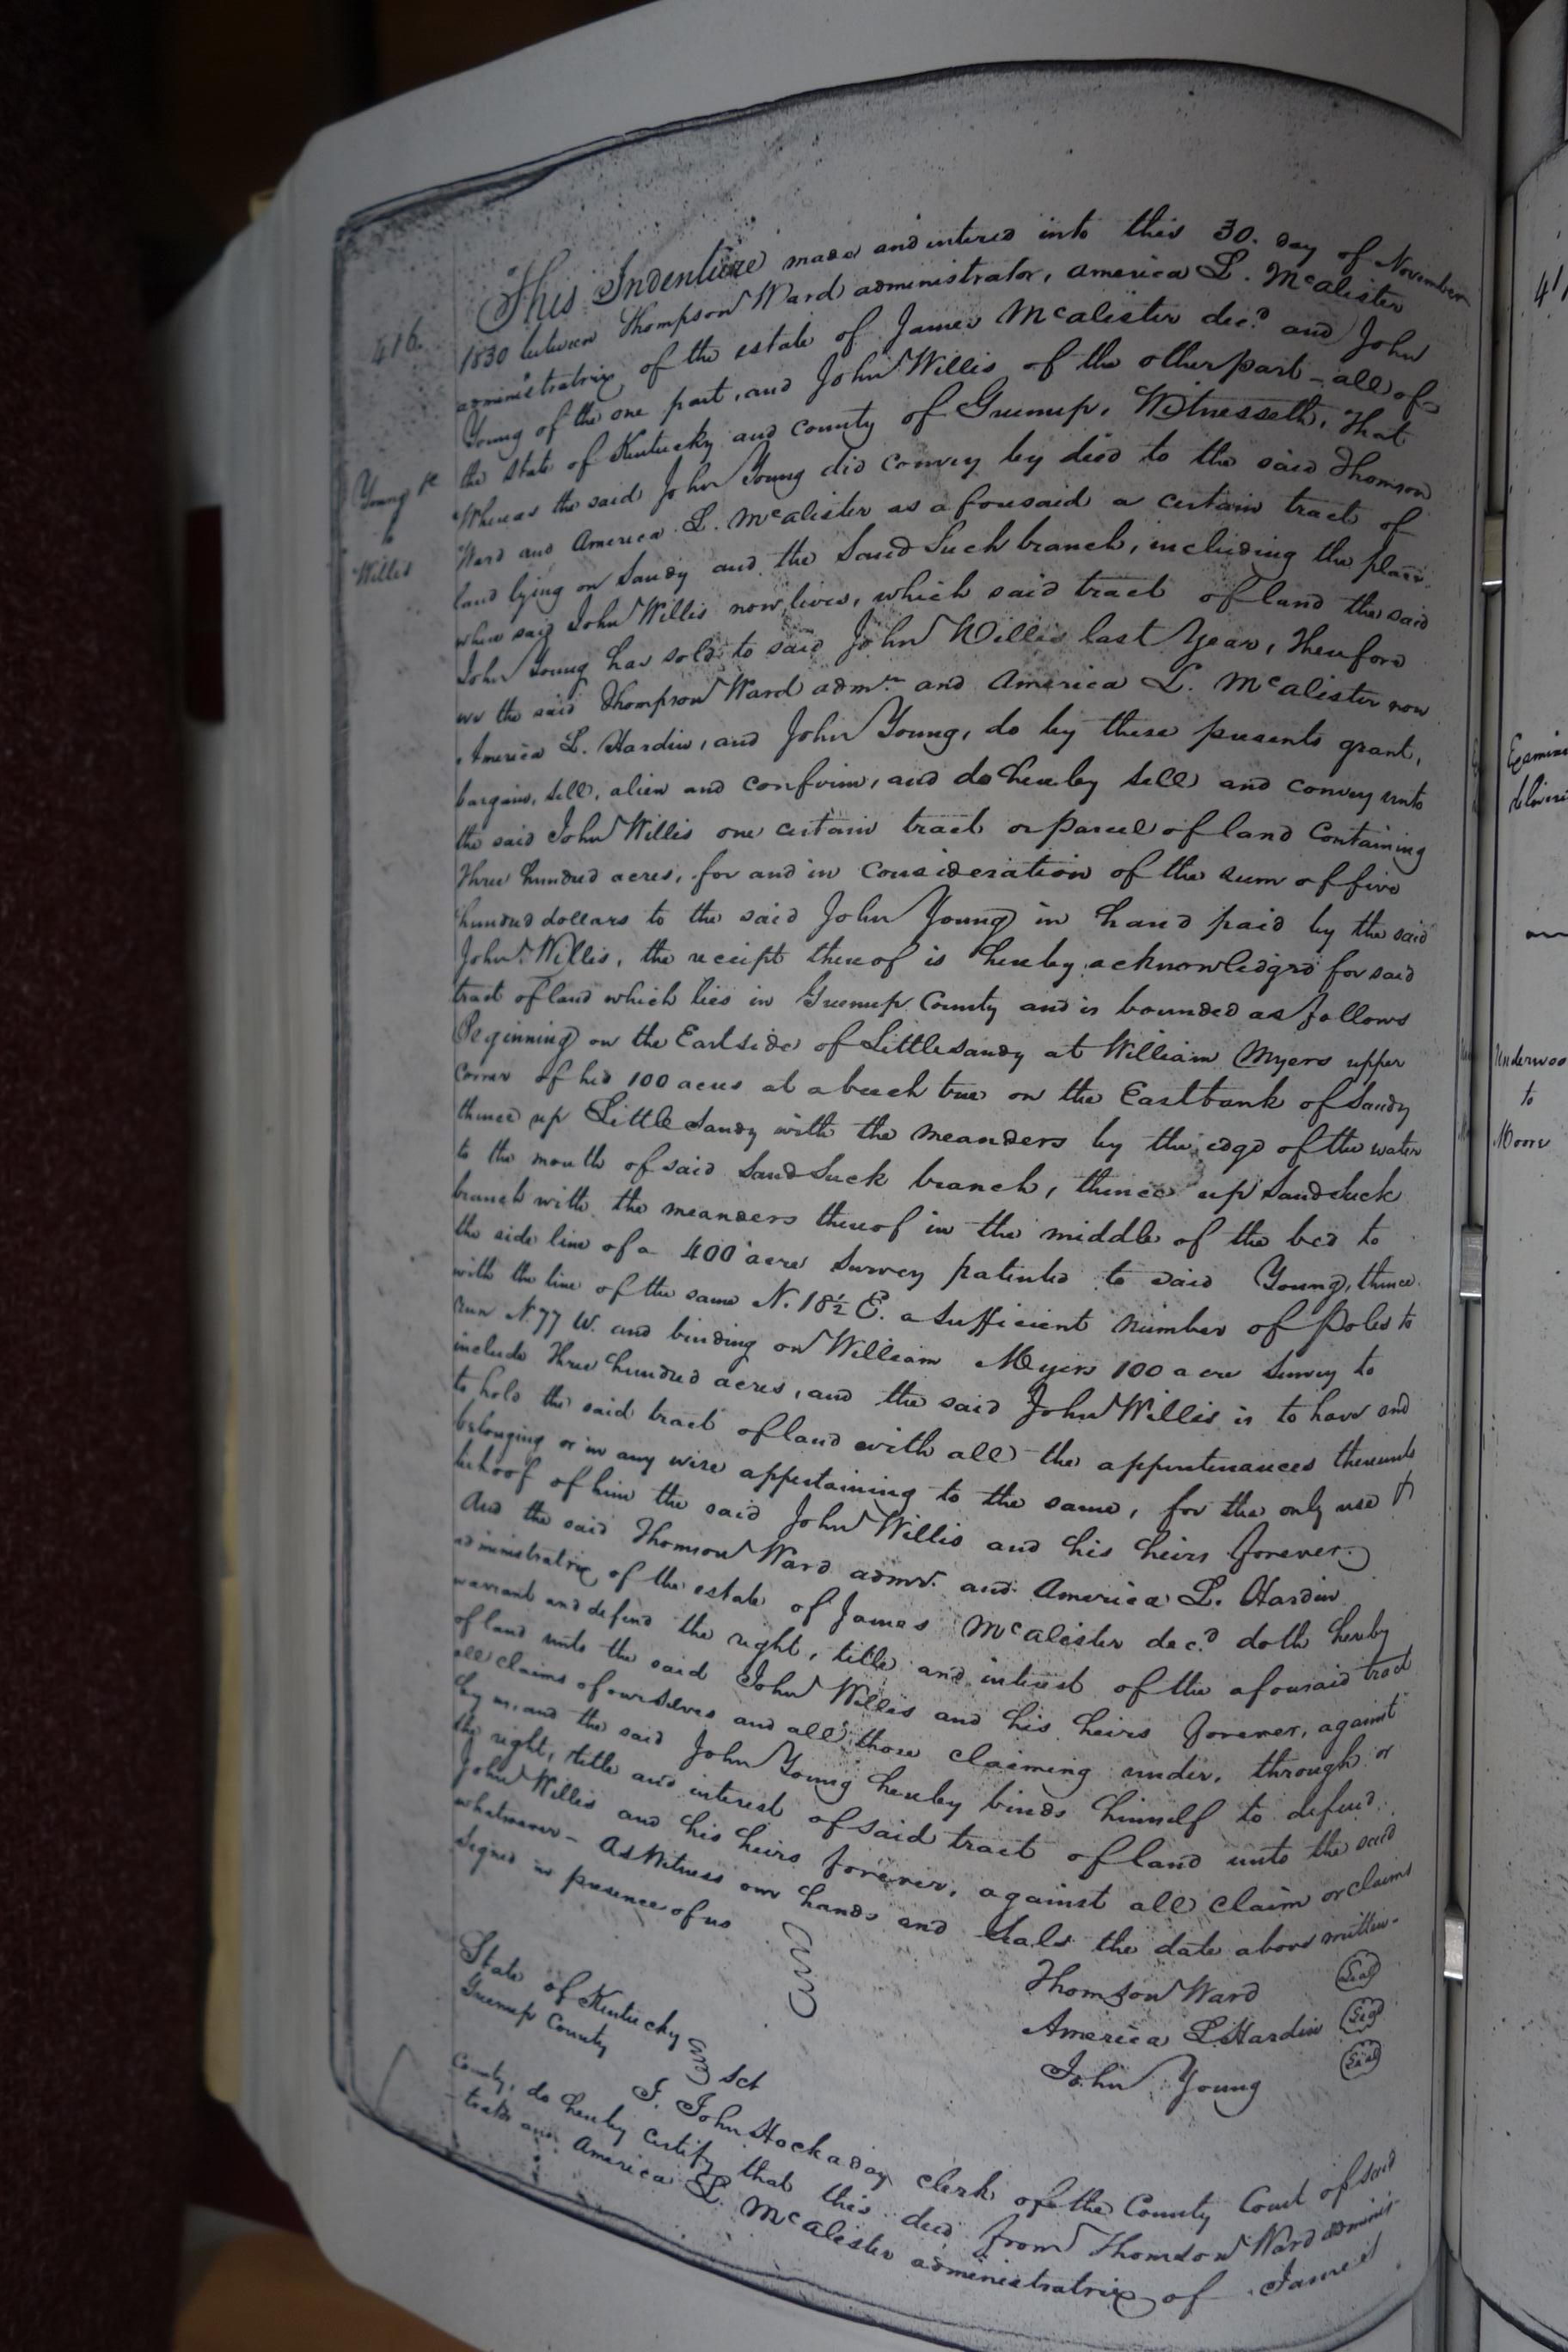 416.
Young &c
to
Willis
This Indenture made and entered into this 30. day of November
1830 between Thompson Ward administrator, America L. McAlister
administratrix of the estate of James McAlister dec.d and John
Young of the one part, and John Willis of the other part - all of
the State of Kentucky and county of Greenup. Witnesseth, That
Whereas the said John Young did convey by deed to the said Thomson
Ward and America L. McAlister as aforesaid a certain tract of
land lying on Sandy and the Sand Suck branch, including the place
where said John Willis now lives, which said tract of land the said
John Young has sold to said John Willis last year, Therefore
we the said Thompson Ward adm.r and America L. McAlister now
America L. Hardin, and John Young, do by these presents grant,
bargain, sell, alien and confirm, and do hereby sell and convey unto
the said John Willis one certain tract or parcel of land containing
Three hundred acres, for and in consideration of the sum of five
hundred dollars to the said John Young in hand paid by the said
John Willis, the receipt thereof is hereby acknowledged for said
tract of land which lies in Greenup County and is bounded as follows
Beginning on the East side of Little Sandy at William Myers upper
corner of his 100 acres at a beech tree on the East bank of Sandy
thence up Little Sandy with the meanders by the edge of the water
to the mouth of said Sand Suck branch, thence up Sand suck
branch with the meanders thereof in the middle of the bed to
the side line of a 400 acre Survey patented to said Young, thence
with the line of the same N. 18½ E. a sufficient number of Poles to
run N. 77 W. and binding on William Myers 100 acre Survey to
include Three hundred acres, and the said John Willis is to have and
to hold the said tract of land with all the appurtenances thereunto
belonging or in any wise appertaining to the same, for the only use &
behoof of him the said John Willis and his heirs forever.
And the said Thomson Ward admr. and America L. Hardin
administratrix of the estate of James McAlister dec.d doth hereby
warrant and defend the right, title and interest of the aforesaid tract
of land unto the said John Willis and his heirs forever, against
all claims of ourselves and all those claiming under, through or
by us, and the said John Young hereby binds himself to defend
the right, title and interest of said tract of land unto the said
John Willis and his heirs forever, against all claim or claims
whatsoever - As Witness our hands and seals the date above written -
Signed in presence of us
Thomson Ward Seal
America L Hardin Seal
John Young Seal
State of Kentucky
Greenup County Sct
I. John Hockaday clerk of the County Court of said
County, do hereby certify that this deed from Thomson Ward adminis-
-trator and America L. McAlister administratrix of James
41
Examined
delivered
Underwoo
to
Moore